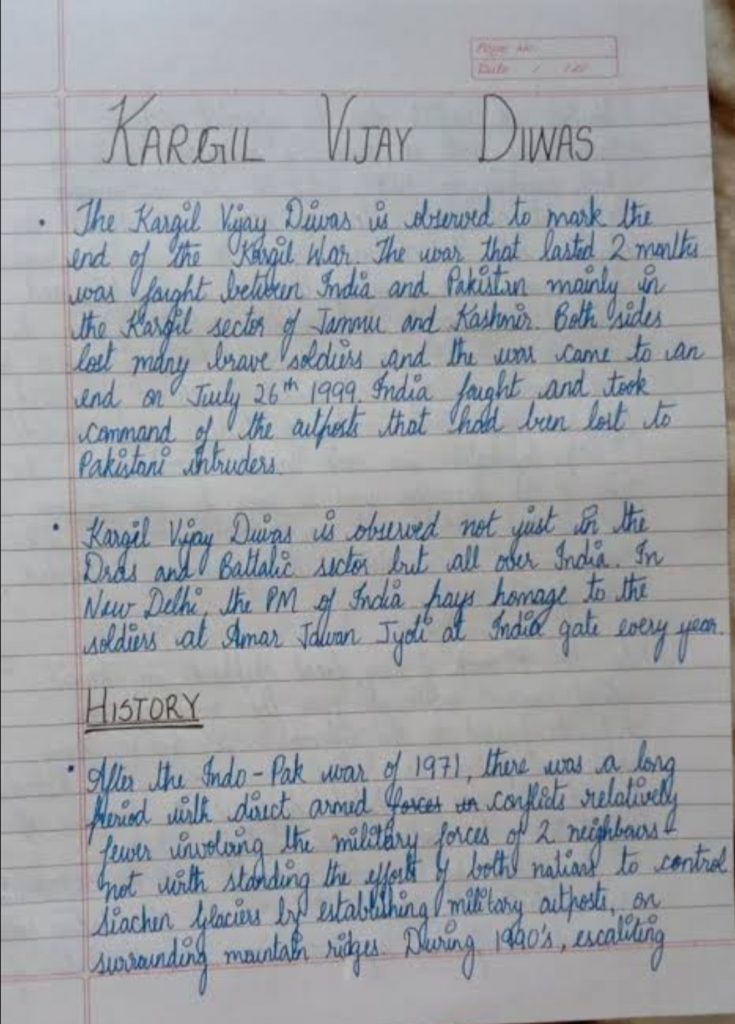 Page No.
Date / /20
KARGIL VIJAY DIWAS
• The Kargil Vijay Diwas is observed to mark the
end of the Kargil War. The war that lasted 2 months
was faught between India and Pakistan mainly in
the Kargil sector of Jammu and Kashmir. Both sides
lost many brave soldiers and the war came to an
end on July 26th 1999. India faught and took
command of the outposts that had been lost to
Pakistani intruders.
• Kargil Vijay Diwas is observed not just in the
Dras and Battalic sector but all over India. In
New Delhi, the PM of India pays homage to the
soldiers at Amar Jawan Jyoti at India gate every year.
HISTORY
• After the Indo-Pak war of 1971, there was a long
period with direct armed conflicts relatively
fewer involving the military forces of 2 neighbours-
not with standing the efforts of both nations to control
Siachen Glaciers by establishing military outposts, on
surrounding mountain ridges. During 1990's, escaliting